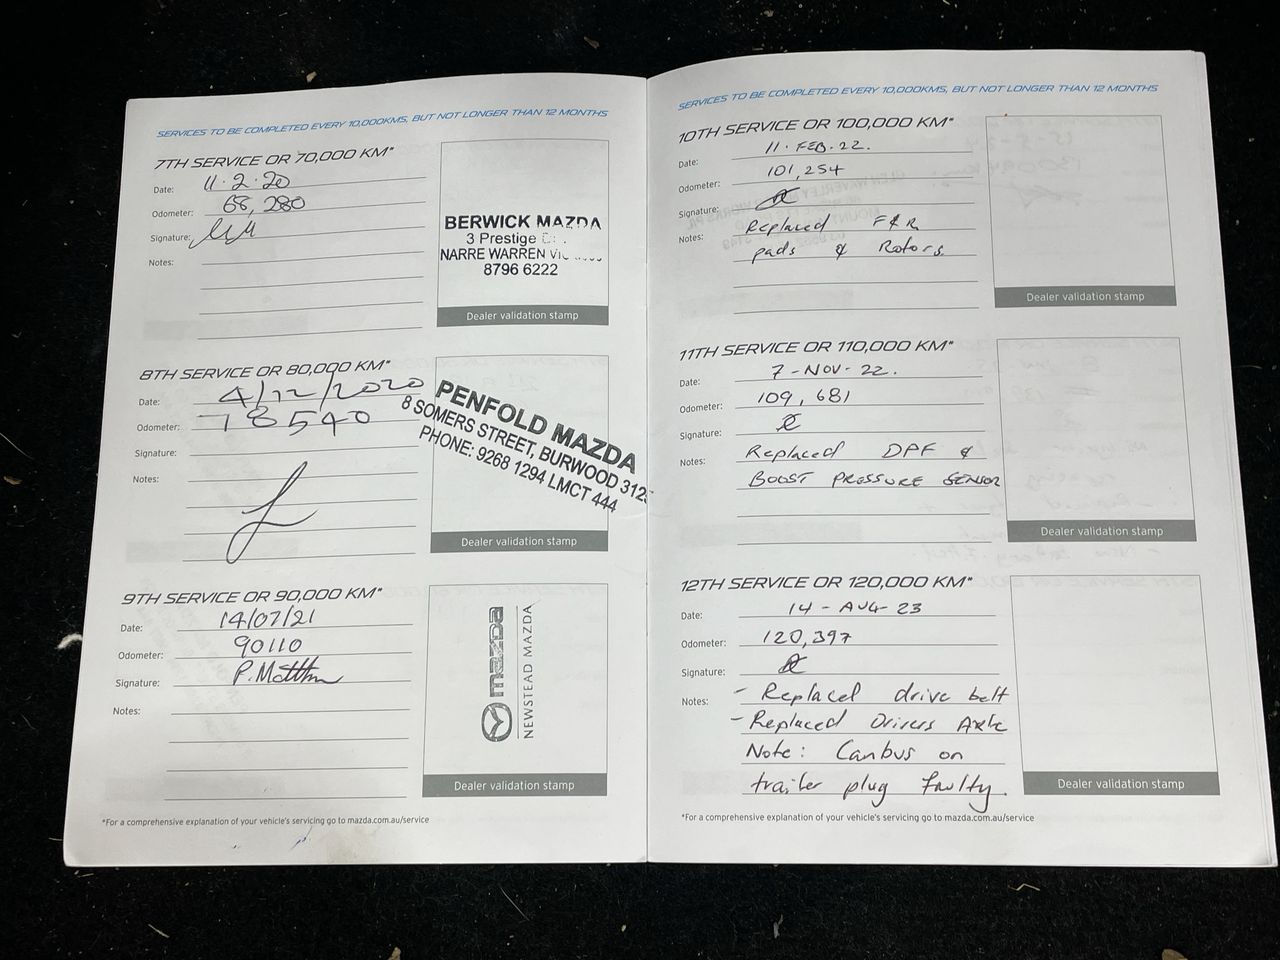 SERVICES TO BE COMPLETED EVERY 10,000KMS, BUT NOT LONGER THAN 12 MONTHS
7TH SERVICE OR 70,000 KM*
Date: 11.2.20
Odometer: 68,280
Signature:
Notes:
BERWICK MAZDA
3 Prestige
NARRE WARREN VIC
8796 6222
Dealer validation stamp
8TH SERVICE OR 80,000 KM*
Date: 4/12/2020
Odometer: 78540
Signature:
Notes:
PENFOLD MAZDA
8 SOMERS STREET, BURWOOD 312
PHONE: 9268 1294 LMCT 444
Dealer validation stamp
9TH SERVICE OR 90,000 KM*
Date: 14/07/21
Odometer: 90110
Signature:
Notes:
mazda
NEWSTEAD MAZDA
Dealer validation stamp
*For a comprehensive explanation of your vehicle's servicing go to mazda.com.au/service
SERVICES TO BE COMPLETED EVERY 10,000KMS, BUT NOT LONGER THAN 12 MONTHS
10TH SERVICE OR 100,000 KM*
Date: 11. FEB. 22.
Odometer: 101,254
Signature:
Notes: Replaced F&R
pads & Rotors.
Dealer validation stamp
11TH SERVICE OR 110,000 KM*
Date: 7-NOV-22.
Odometer: 109,681
Signature:
Notes: Replaced DPF &
BOOST PRESSURE SENSOR
Dealer validation stamp
12TH SERVICE OR 120,000 KM*
Date: 14-AUG-23
Odometer: 120,397
Signature:
Notes: - Replaced drive belt
- Replaced Drivers Axle
Note: Canbus on
trailer plug faulty.
Dealer validation stamp
*For a comprehensive explanation of your vehicle's servicing go to mazda.com.au/service